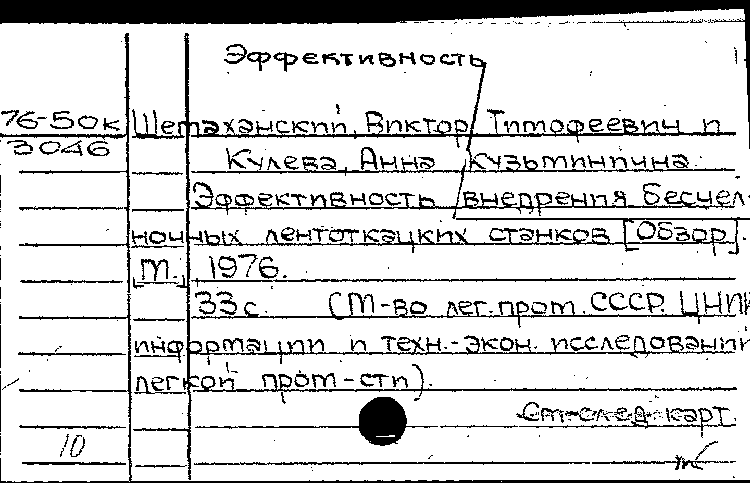 Эффективность
76-50к Шемаханский, Виктор Тимофеевич и
3046 Кулева, Анна Кузьминична.
Эффективность внедрения бесчел-
ночных лентоткацких станков [Обзор].
[М.], 1976.
33 с. (М-во лег. пром. СССР. ЦНИИ
информации и техн.-экон. исследований
легкой пром-сти).
См. след. карт.
10